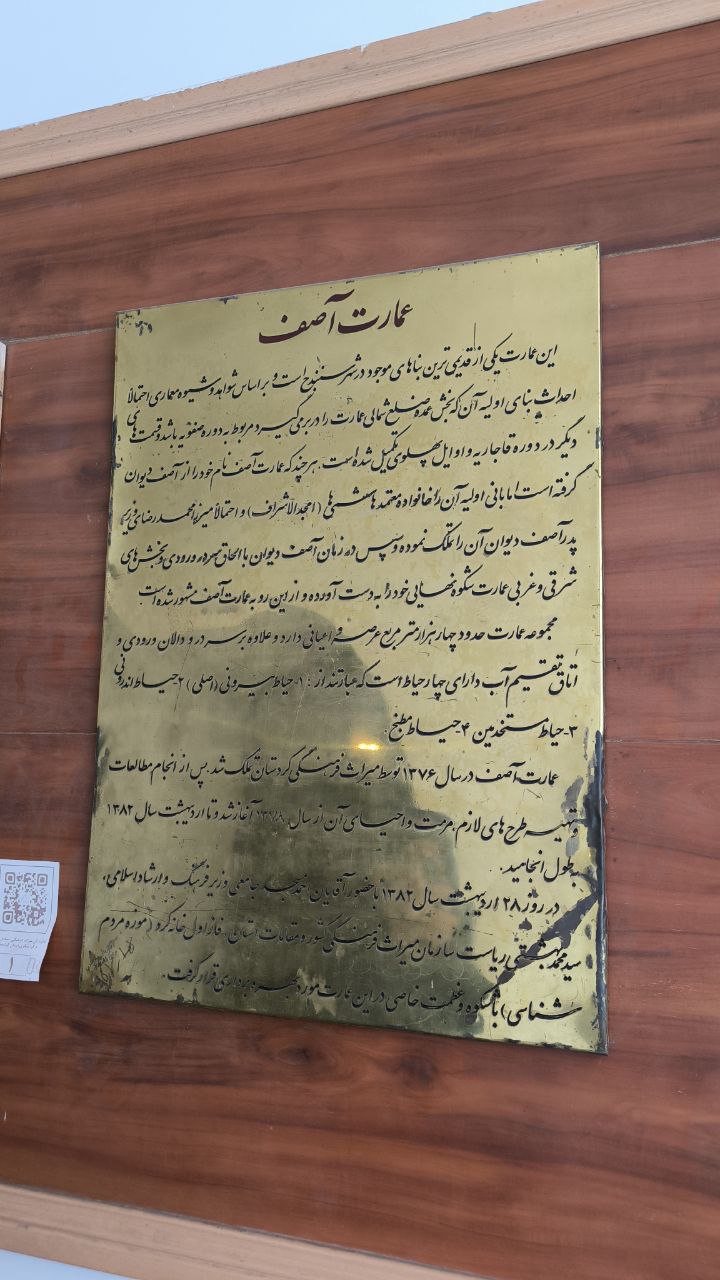 عمارت آصف
این عمارت یکی از قدیمی ترین بناهای موجود در شهر سنندج است و بر اساس شواهد و شیوه معماری احتمالاً
احداث بنای اولیه آن که بخش عمده ضلع شمالی عمارت را در بر می گیرد مربوط به دوره صفویه باشد و قسمت های
دیگر در دوره قاجاریه و اوایل پهلوی تکمیل شده است. هر چند که عمارت آصف نام خود را از آصف دیوان
گرفته است اما بانی اولیه آن را خانواده معتمد هاشمی ها (امجدالاشراف) و احتمالاً میرزا محمد رضای وزیر
پدر آصف دیوان آن را تملک نموده و سپس در زمان آصف دیوان با الحاق سردر ورودی و بخش های
شرقی و غربی عمارت شکوه نهایی خود را به دست آورده و از این رو به عمارت آصف مشهور شده است
مجموعه عمارت حدود چهار هزار متر مربع عرصه و اعیانی دارد و علاوه بر سر در و دالان ورودی و
اتاق تقسیم آب دارای چهار حیاط است که عبارتند از : ۱- حیاط بیرونی (اصلی) ۲- حیاط اندرونی
۳- حیاط مستخدمین ۴- حیاط مطبخ.
عمارت آصف در سال ۱۳۷۶ توسط میراث فرهنگی کردستان تملک شد. پس از انجام مطالعات
و تهیه طرح های لازم، مرمت و احیای آن از سال آغاز شد و تا اردیبهشت سال ۱۳۸۲
بطول انجامید.
در روز ۲۸ اردیبهشت سال ۱۳۸۲ با حضور آقایان احمد مسجد جامعی وزیر فرهنگ و ارشاد اسلامی،
سید محمد بهشتی ریاست سازمان میراث فرهنگی کشور و مقامات استانی، فاز اول خانه کرد (موزه مردم
شناسی) با شکوه و عظمت خاصی در این عمارت مورد بهره برداری قرار گرفت.